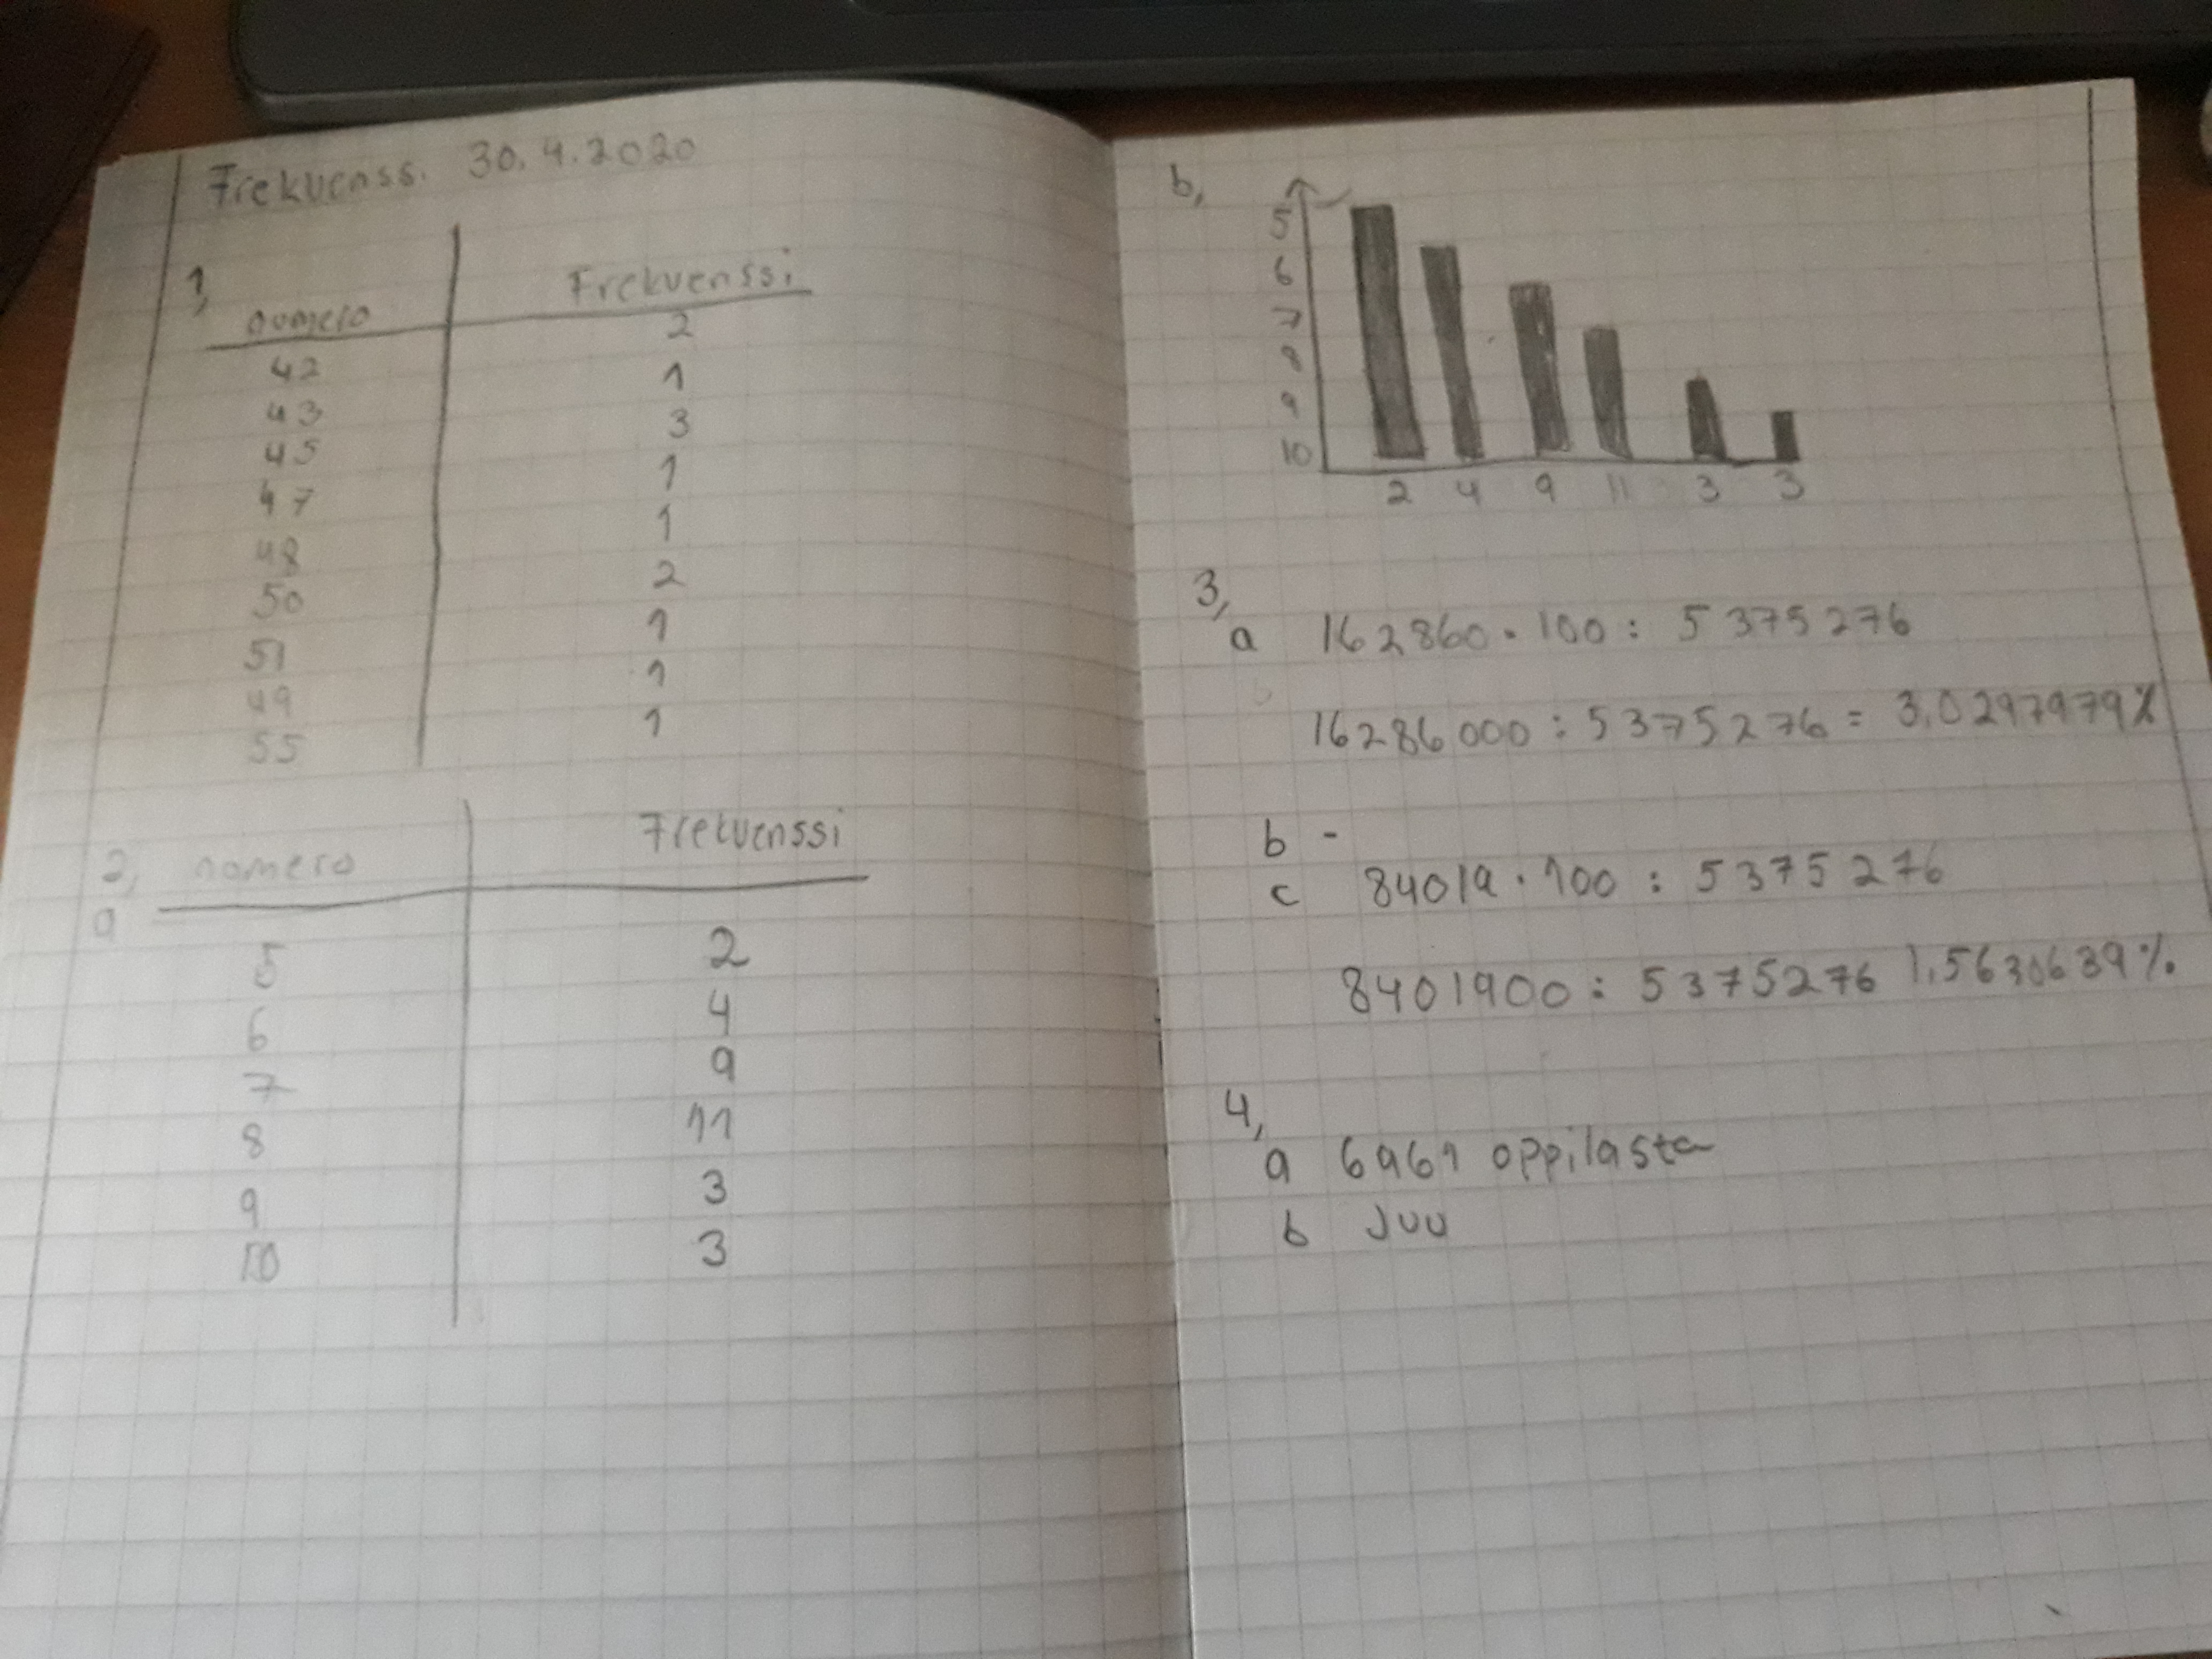 Frekvenss. 30.4.2020
1, numero Frekvenssi
42 2
43 1
45 3
47 1
48 1
50 2
51 1
49 1
55 1
2, numero Frekvenssi
a
5 2
6 4
7 9
8 11
9 3
10 3
b,
5
6
7
8
9
10
2 4 9 11 3 3
3,
a 162860 · 100 : 5375276
16286000 : 5375276 = 3,0297979%
b -
c 84019 · 100 : 5375276
8401900 : 5375276 1,5630639%.
4,
a 6961 oppilasta
b Juu